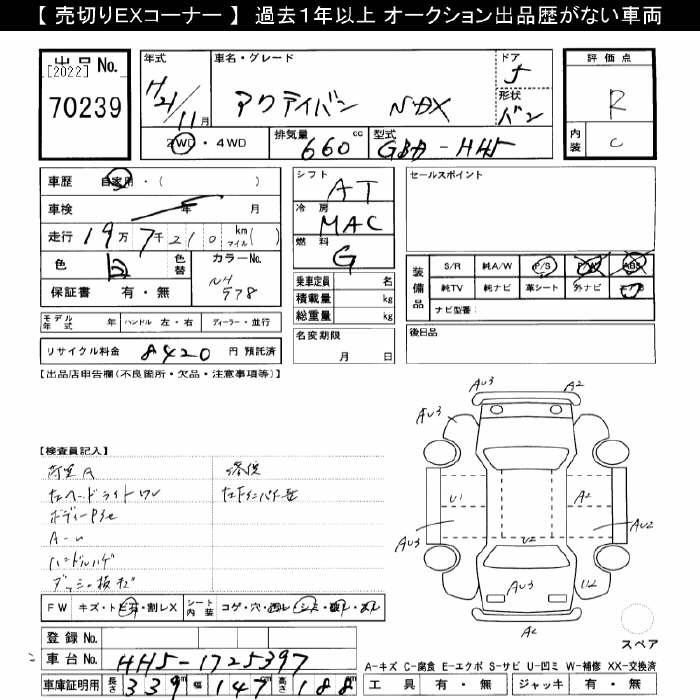 【 売切りEXコーナー 】 過去1年以上 オークション出品歴がない車両
出品 No.
[2022]
70239
年式
H21/11月
車名・グレード
アクティバン NBX
ドア
5
形状
バン
2WD・4WD
排気量
660 cc
型式
GBD-HH5
評価点
R
内装
C
車歴 自家用・( )
車検 年 月
走行 19万7千210 km マイル( )
色 白 色替
カラーNo.
NH578
保証書 有・無
シフト
AT
冷房
MAC
燃料
G
乗車定員 名
積載量 kg
総重量 kg
名変期限
月 日
セールスポイント
装備品
S/R 純A/W P/S P/W ABS
純TV 純ナビ 革シート 外ナビ エアB
ナビ型番:
後日品
モデル年式 年 ハンドル 左・右 ディーラー・並行
リサイクル料金 8420 円 預託済
【出品店申告欄(不良箇所・欠品・注意事項等)】
【検査員記入】
荷室A
左ヘードライトワレ
ボディーPSe
ハンドルハゲ
FW キズ・トビ石・割レX シート内装 コゲ・穴・切レ・シミ・
登録 No.
車台 No. HH5-1725397
車庫証明用 長さ 339 m 幅 147 m 高さ 188
AU3
A2
AU3
U1
A2
AU3
U2
AU2
AU3
U2
A2
スペア
A-キズ C-腐食 E-エクボ S-サビ U-凹ミ W-補修 XX-交換済
工具 有・無 ジャッキ 有・無